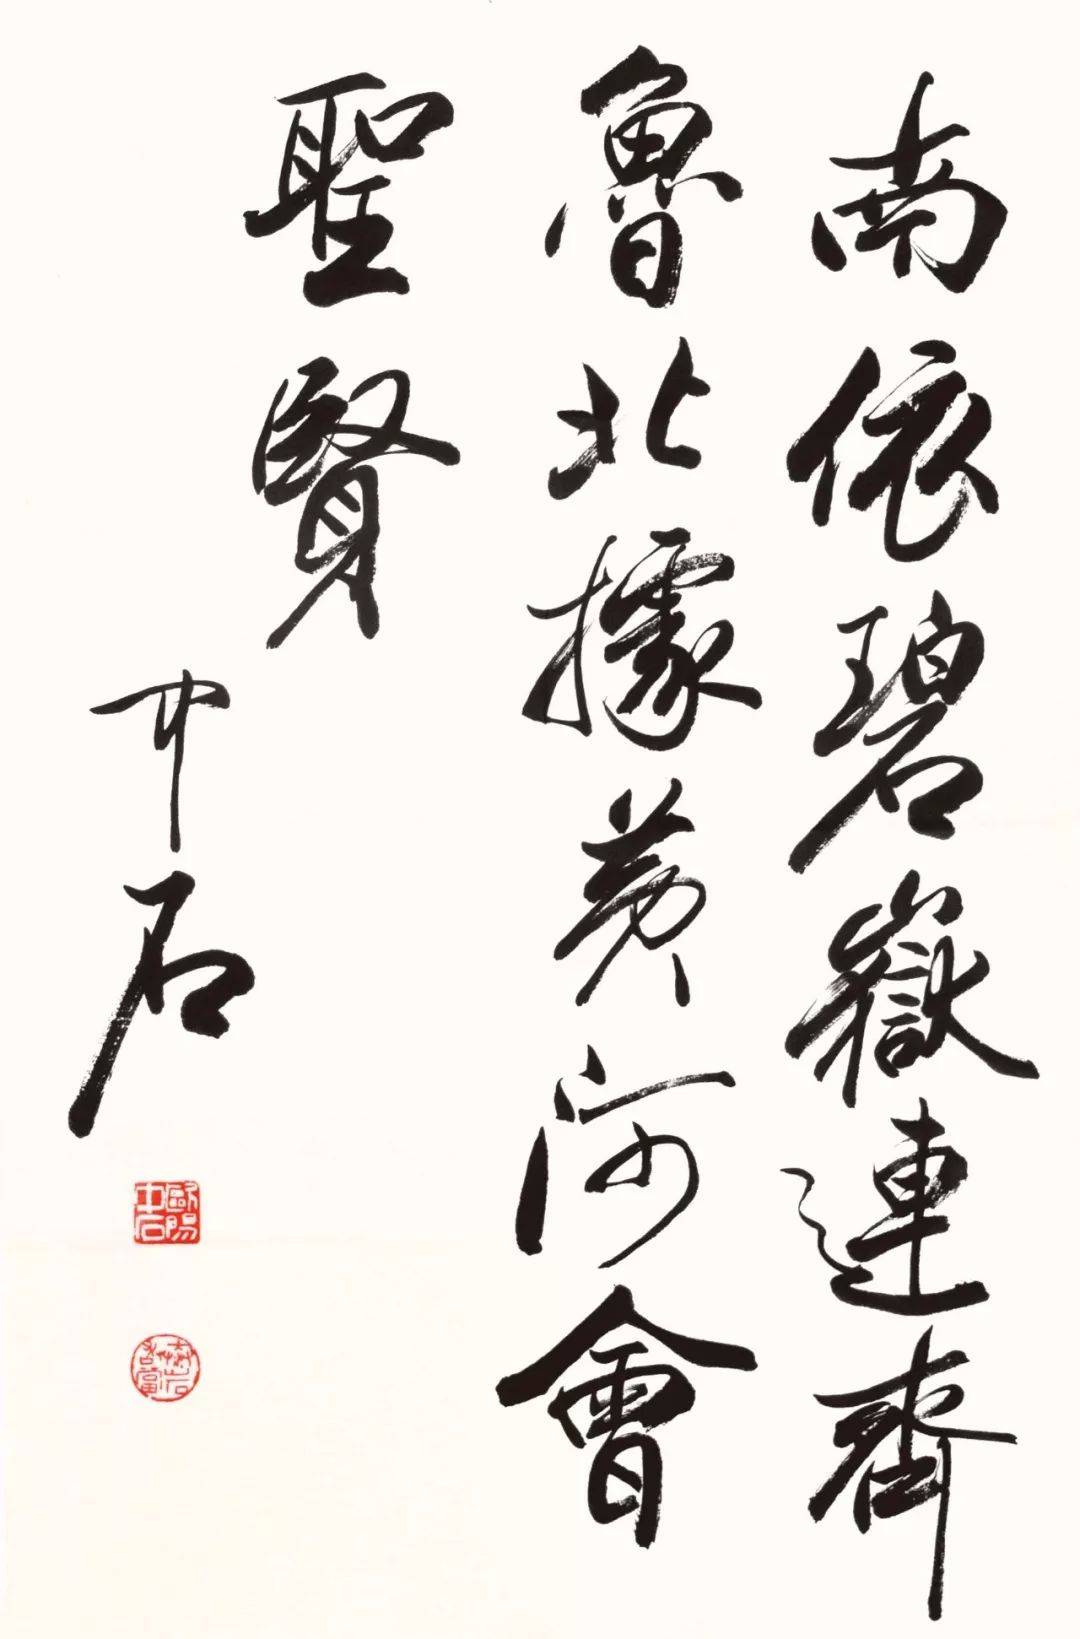 南依碧嶽連齊
魯北據黄河會
聖賢
中石
歐陽
中石